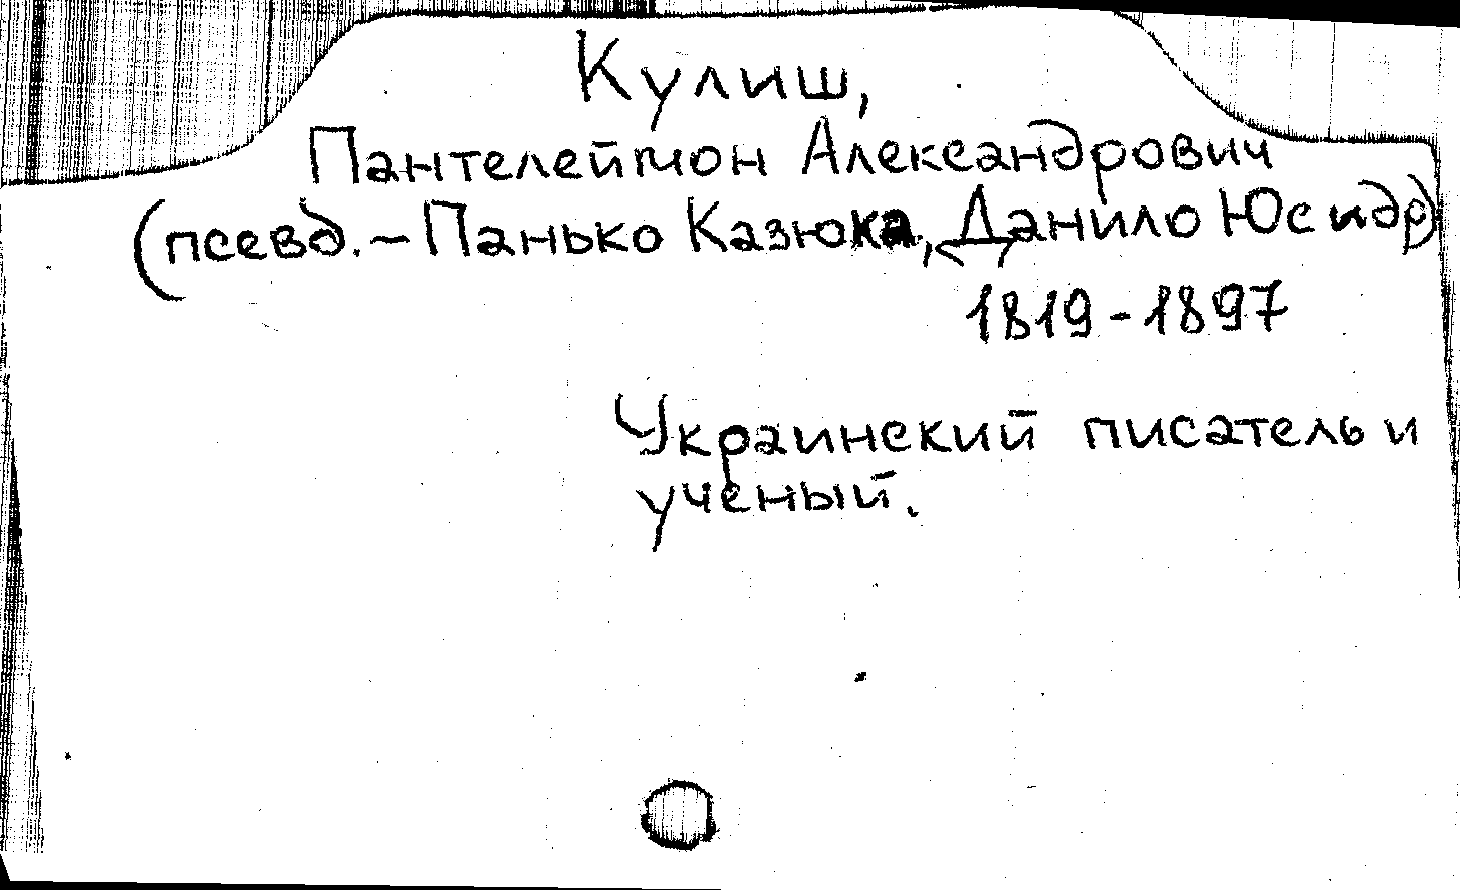 Кулиш,
Пантелеймон Александрович
(псевд. – Панько Казюка, Данило Юсидр)
1819-1897
Украинский писатель и
ученый.